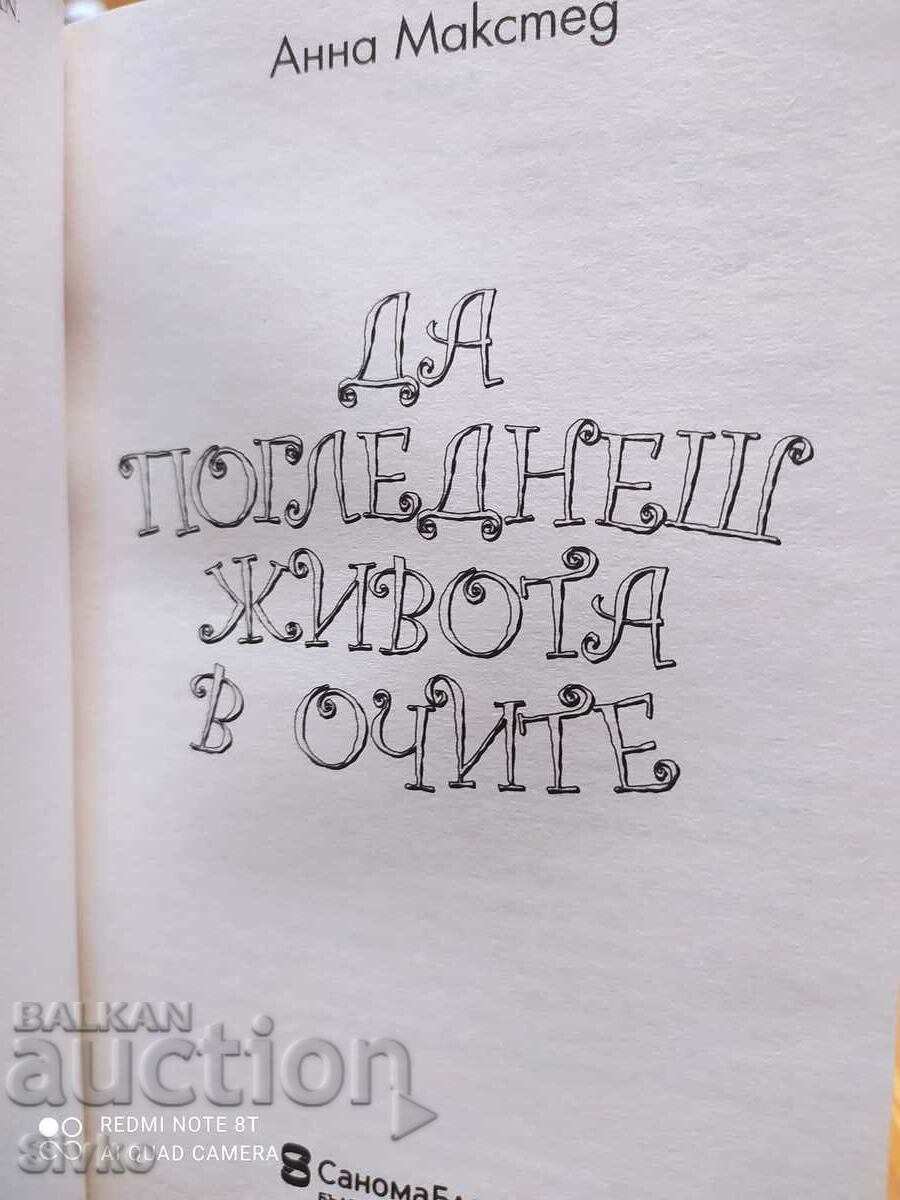 Анна Макстед
ДА
ПОГЛЕДНЕШ
ЖИВОТА
В ОЧИТЕ
BALKAN
auction
REDMI NOTE 8T
AI QUAD CAMERA
Sivko